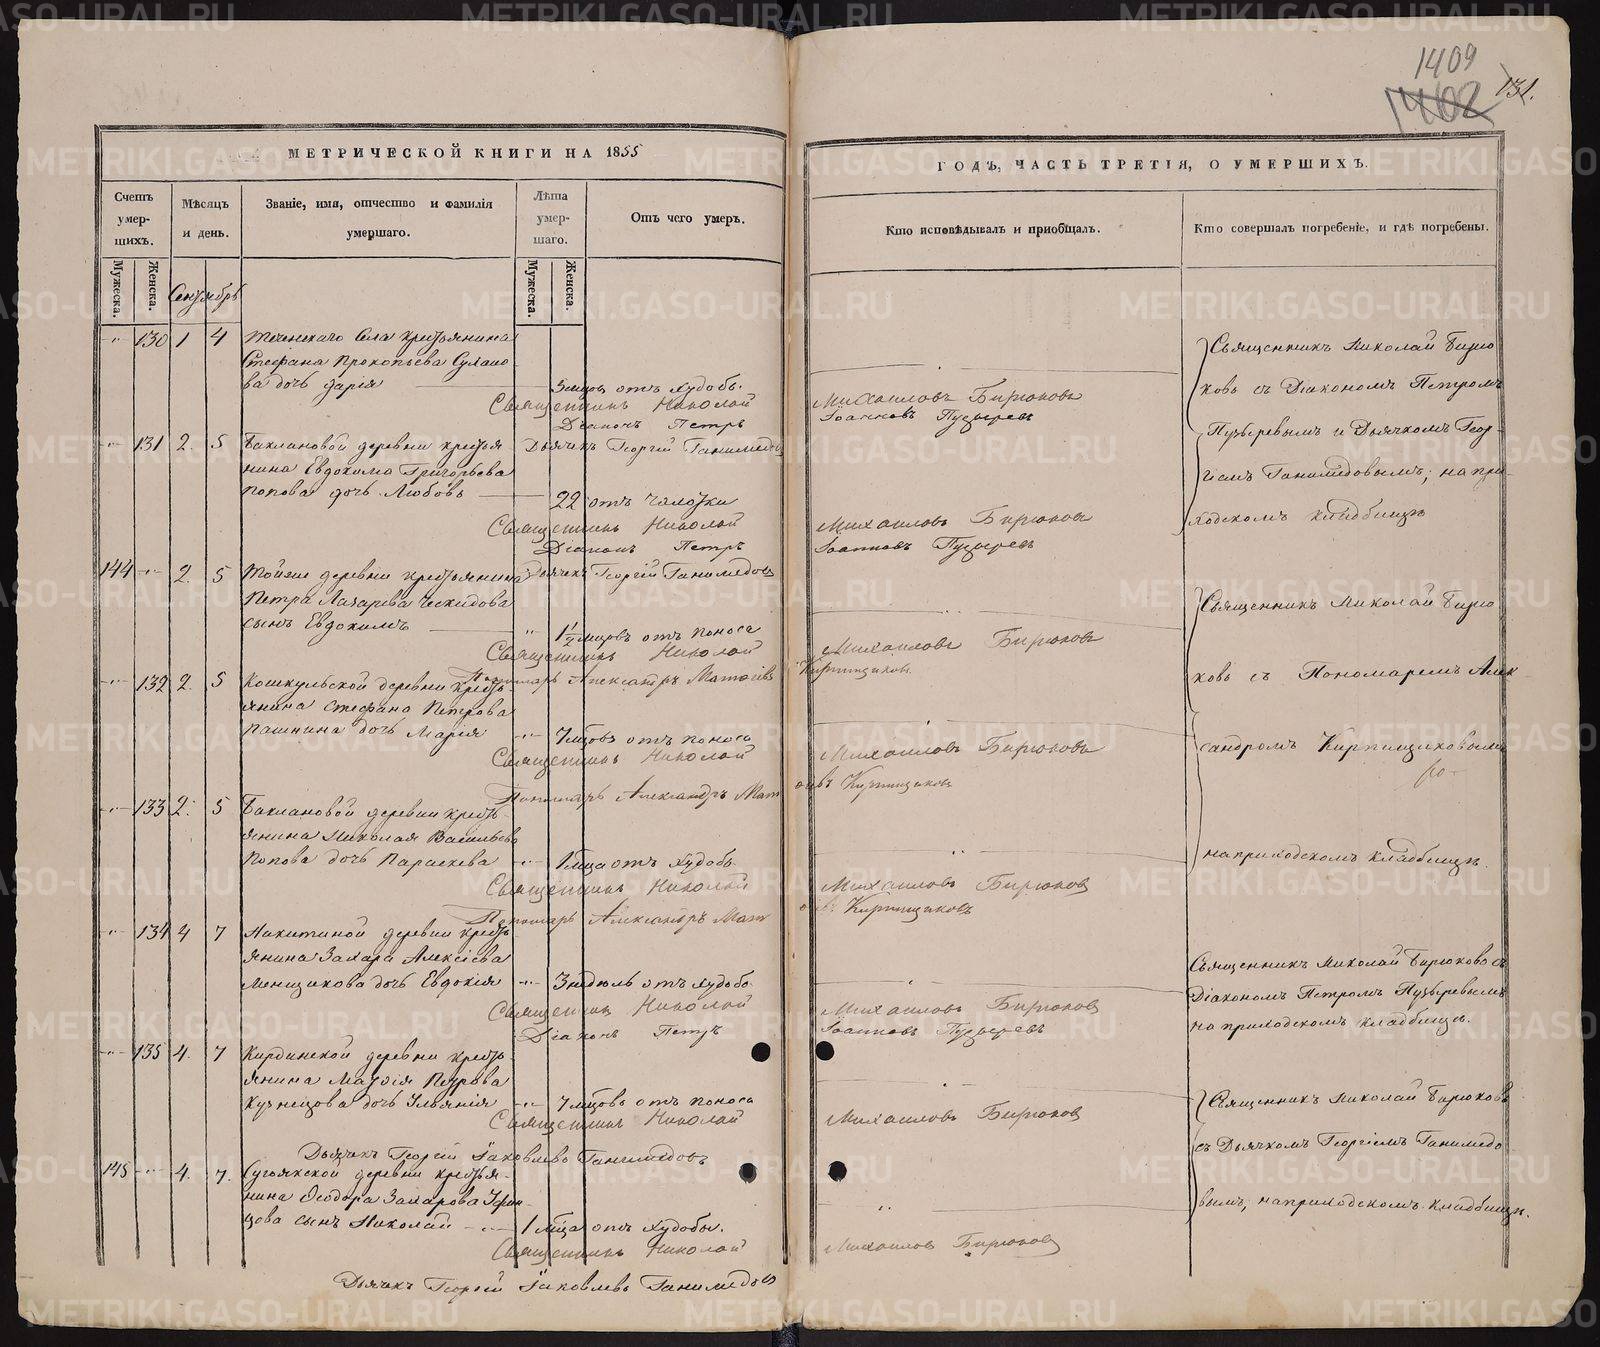 1409
1402
131.
МЕТРИЧЕСКОЙ КНИГИ НА 1855
ГОДЪ, ЧАСТЬ ТРЕТІЯ, О УМЕРШИХЪ.
Счетъ умер-шихъ.
Мѣсяцъ и день.
Званіе, имя, отчество и фамилія умершаго.
Лѣта умер-шаго.
Отъ чего умеръ.
Кто исповѣдывалъ и пріобщалъ.
Кто совершалъ погребеніе, и гдѣ погребены.
Мужеска.
Женска.
Мужеска.
Женска.
Сентябрь
130 1 4 села крестьянина
Стефана Прокопьева
ва дочь Дарія 3 мцов отъ худобы.
Священникъ Николай Михаиловъ Бирюковъ
Діаконъ Петръ Іоанновъ Пузыревъ
131 2. 5 Баклановой деревни крестья
Дьячекъ Георгій Ганимедовъ
нина Евдокима Григорьева
Попова дочь Любовь 22 отъ чахотки
Священникъ Николай Михаиловъ Бирюковъ
Діаконъ Петръ Іоанновъ Пузыревъ
Священникъ Николай Бирю
ковъ съ Діакономъ Петромъ
Пузыревымъ и Дьячкомъ Геор-
гіемъ Ганимедовымъ; на при-
ходскомъ кладбищѣ
144 2. 5 деревни крестьянина
Дьячекъ Георгій Ганимедовъ
Петра Лазарева
сынъ Евдокимъ 1½ мцовъ отъ поноса
Священникъ Николай Михаиловъ Бирюковъ
Пономарь Александръ Матвіевъ Кирпищиковъ.
132 2. 5 Кошкульской деревни кресть-
янина Стефана Петрова
Пашнина дочь Марія 7 мцовъ отъ поноса
Священникъ Николай Михаиловъ Бирюковъ
Пономарь Александръ Матвіевъ Кирпищиковъ
133 2. 5 Баклановой деревни кресть-
янина Николая Васильева
Попова дочь Параскева 1 мца отъ худобы
Священникъ Николай Михаиловъ Бирюковъ
Пономарь Александръ Матвіевъ Кирпищиковъ
Священникъ Николай Бирю
ковъ съ Пономаремъ Алек
сандромъ Кирпищиковымъ
на приходскомъ кладбищѣ.
134 4 7 Никитиной деревни кресть-
янина Захара Алексіева
Менщикова дочь Евдокія 3 недѣль отъ худобы
Священникъ Николай Михаиловъ Бирюковъ
Діаконъ Петръ Іоанновъ Пузыревъ
Священникъ Николай Бирюковъ съ
Діакономъ Петромъ Пузыревымъ
на приходскомъ кладбищѣ.
135 4. 7 Кирдинской деревни кресть-
янина Матѳія Петрова
Кузнецова дочь Ульянія 7 мцовъ отъ поноса
Священникъ Николай Михаиловъ Бирюковъ
Дьячекъ Георгій Іаковлевъ Ганимедовъ
145 4. 7. Сугоякской деревни крестья-
нина Ѳеодора Захарова
цова сынъ Николай 1 мца отъ худобы.
Священникъ Николай Михаиловъ Бирюковъ
Дьячекъ Георгій Іаковлевъ Ганимедовъ
Священникъ Николай Бирюковъ
съ Дьячкомъ Георгіемъ Ганимедо
вымъ, на приходскомъ кладбищѣ.
METRIKI.GASO-URAL.RU